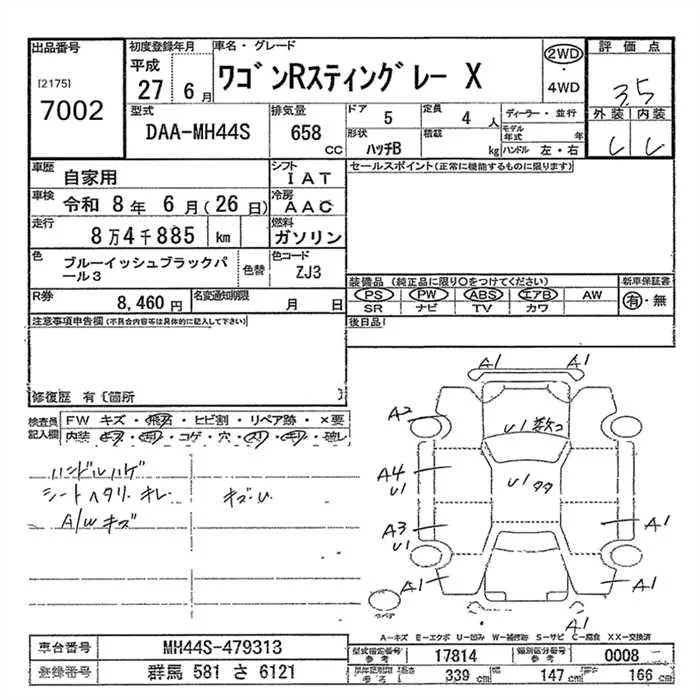 出品番号
[2175]
7002
初度登録年月
平成
27 6月
車名・グレード
ワゴンRスティングレー X
2WD
・
4WD
評価点
3.5
外装 内装
型式
DAA-MH44S
排気量
658
CC
ドア
5
定員
4 人
形状
ハッチB
積載
kg
ディーラー・並行
モデル年式 年
ハンドル 左・右
車歴
自家用
シフト
IAT
車検
令和 8年 6月(26日)
冷房
AAC
走行
8万4千885 km
燃料
ガソリン
色
ブルーイッシュブラックパール3
色替
色コード
ZJ3
R券
8,460円
名変通知期限
月 日
セールスポイント(正常に機能するものに限ります)
装備品 (純正品に限り○をつけてください)
PS PW ABS エアB AW
SR ナビ TV カワ
新車保証書
有・無
後日品
注意事項申告欄 (不具合内容等は具体的に記入して下さい)
修復歴 有〔箇所 〕
検査員記入欄
FW キズ・飛石・ヒビ割・リペア跡・×要
内装・キズ・ヨゴレ・コゲ・穴・スリ・キレ・破レ
ハンドルハゲ
シートヘタリ キレ
A/Wキズ
キズ・U
A1 A1
A2
U1数コ
A4
U1
U1タタ
A3
U1
A1
A1
A1
A1
スペア
A-キズ E-エクボ U-凹み W-補修跡 S-サビ C-腐食 XX-交換済
車台番号
MH44S-479313
登録番号
群馬 581 さ 6121
型式指定番号
参考
17814
類別区分番号
参考
0008
長さ
339 cm
147 cm
166 cm